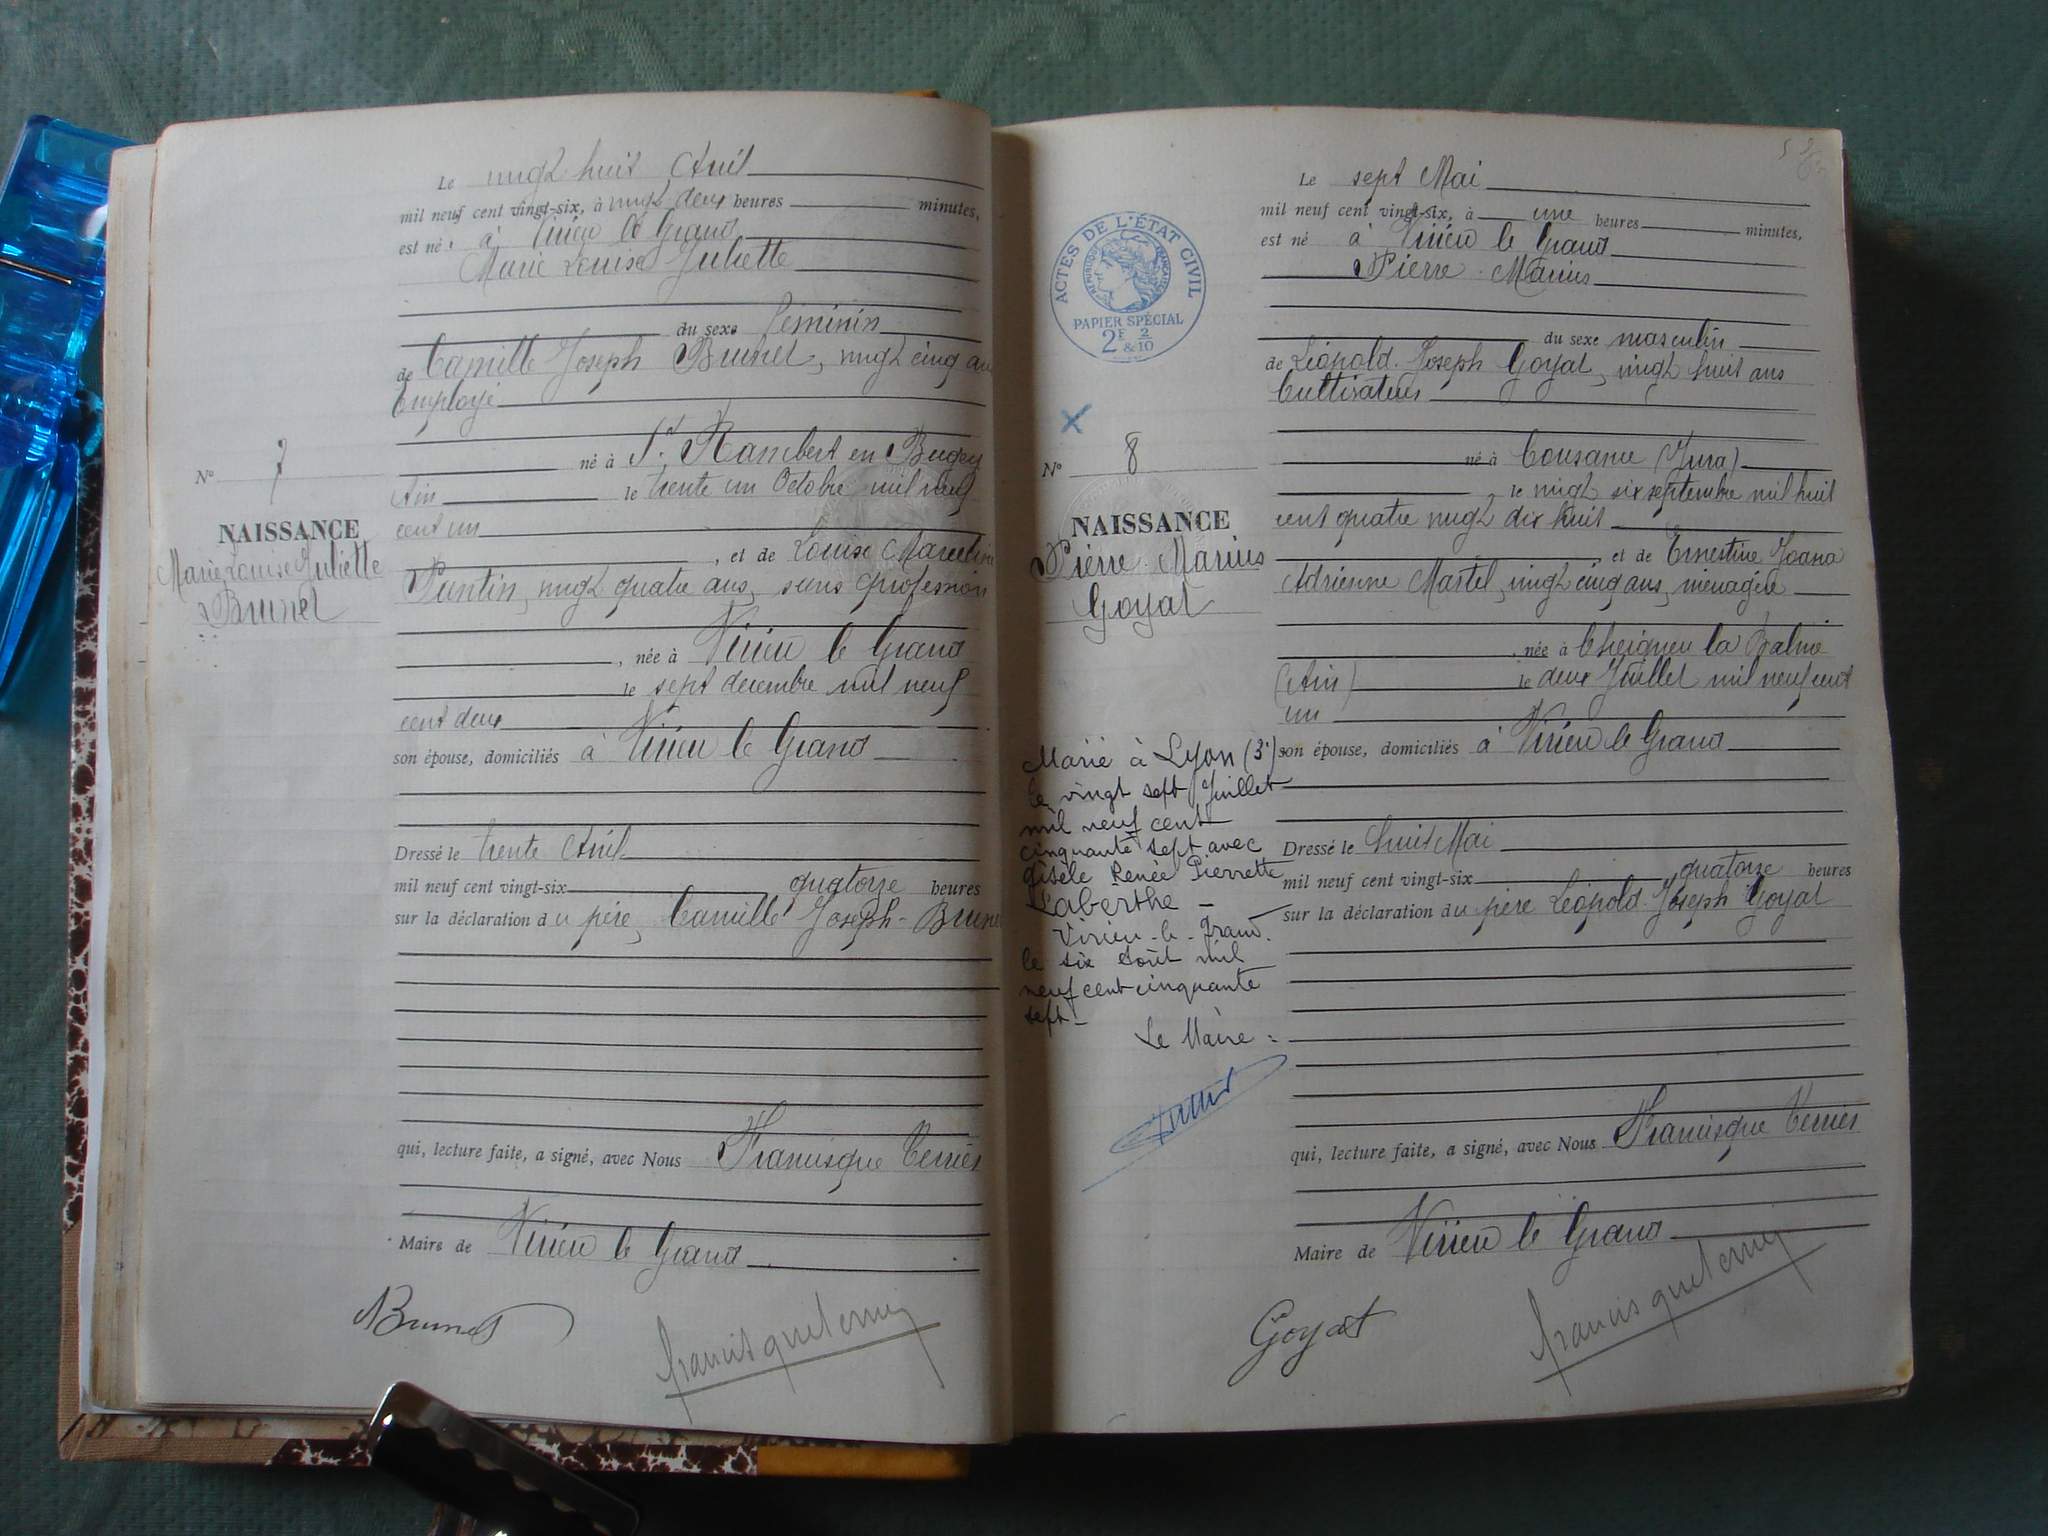 Le vingt huit Avril
mil neuf cent vingt-six, à vingt deux heures minutes,
est né à Virieu le Grand
Marie Louise Juliette
du sexe féminin
de Camille Joseph Brunet, vingt cinq ans
Employé
né à St Rambert en Bugey
Ain le trente un Octobre mil neuf
cent un
, et de Louise Marceline
Puntin, vingt quatre ans, sans profession
, née à Virieu le Grand
le sept décembre mil neuf
cent deux
son épouse, domiciliés à Virieu le Grand
Dressé le trente Avril
mil neuf cent vingt-six, quatorze heures
sur la déclaration du père, Camille Joseph Brunet
qui, lecture faite, a signé, avec Nous Francisque Terrier
Maire de Virieu le Grand
Brunet
francisque terrier
N° 7
NAISSANCE
Marie Louise Juliette
Brunet
Le sept Mai
mil neuf cent vingt-six, à une heures minutes,
est né à Virieu le Grand
Pierre Marius
du sexe masculin
de Léopold Joseph Goyat, vingt huit ans
Cultivateur
né à Cousance (Jura)
, le vingt six septembre mil huit
cent quatre vingt dix huit
et de Ernestine Joana
Adrienne Martel, vingt cinq ans, ménagère
, née à Cheignieu la Balme
(Ain) le deux Juillet mil neuf cent
un
son épouse, domiciliés à Virieu le Grand
Dressé le huit Mai
mil neuf cent vingt-six, quatorze heures
sur la déclaration du père Léopold Joseph Goyat
qui, lecture faite, a signé, avec Nous Francisque Terrier
Maire de Virieu le Grand
Goyat
francisque terrier
ACTES DE L'ÉTAT CIVIL
RÉPUBLIQUE FRANÇAISE
PAPIER SPÉCIAL
2F & 2/10
N° 8
NAISSANCE
Pierre Marius
Goyat
Marié à Lyon (3e)
le vingt sept Juillet
mil neuf cent
cinquante sept avec
Gisèle Renée Pierrette
Laberthe -
Virieu-le-Grand
le six Août mil
neuf cent cinquante
sept-
Le Maire :